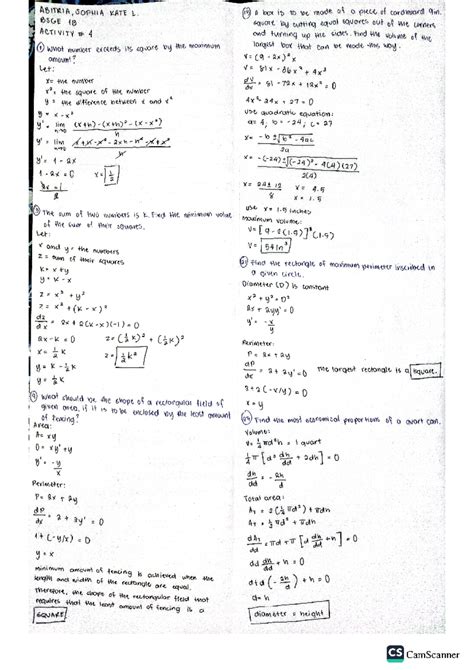 ABITRIA, SOPHIA KATE L.
BSGE 1B
ACTIVITY # 4
① What number exceeds its square by the maximum
amount?
Let:
x = the number
x² = the square of the number
y = the difference between x and x²
y = x - x²
y' = lim (x+h) - (x+h)² - (x - x²)
h
y' = lim x + h - x² - 2xh - h² - x + x²
h
y' = 1 - 2x
1 - 2x = 0 x = 1/2
2x = 1
The sum of two numbers is k. Find the minimum value
of the sum of their squares.
Let:
x and y = the numbers
z = sum of their squares
k = x + y
y = k - x
z = x² + y²
z = x² + (k - x)²
dz/dx = 2x + 2(k - x)(-1) = 0
2x - k = 0 z = (1/2 k)² + (1/2 k)²
x = 1/2 k z = 1/2 k²
y = k - 1/2 k
y = 1/2 k
⑨ What should be the shape of a rectangular field of
given area, if it is to be enclosed by the least amount
of fencing?
Area:
A = xy
0 = xy' + y
y' = -y/x
Perimeter:
P = 2x + 2y
dP/dx = 2 + 2y' = 0
1 + (-y/x) = 0
y = x
minimum amount of fencing is achieved when the
length and width of the rectangle are equal.
Therefore, the shape of the rectangular field that
requires that the least amount of fencing is a
SQUARE
A box is to be made of a piece of cardboard 9in.
square by cutting equal squares out of the corners
and turning up the sides. Find the volume of the
largest box that can be made this way.
V = (9 - 2x)² x
V = 81x - 36x² + 4x³
dV/dx = 81 - 72x + 12x² = 0
4x² - 24x + 27 = 0
use quadratic equation:
a = 4, b = -24, c = 27
x = -b ± √b² - 4ac
2a
x = -(-24) ± √(-24)² - 4(4)(27)
2(4)
x = 24 ± 12 x = 4.5
8 x = 1.5
use x = 1.5 inches
Maximum volume:
V = [9 - 2(1.5)]² (1.5)
V = 54in³
Find the rectangle of maximum perimeter inscribed in
a given circle.
Diameter (D) is constant
x² + y² = D²
2x + 2yy' = 0
y' = -x/y
Perimeter:
P = 2x + 2y
dP/dx = 2 + 2y' = 0 the largest rectangle is a square.
2 + 2(-x/y) = 0
x = y
Find the most economical proportions of a quart can.
Volume:
V = 1/4 πd²h = 1 quart
1/4 π [d² dh/dd + 2dh] = 0
dh/dd = -2h/d
Total area:
AT = 2(1/4 πd²) + πdh
AT = 1/2 πd² + πdh
dAT/dd = πd + π [d dh/dd + h] = 0
d + d dh/dd + h = 0
d + d(-2h/d) + h = 0
d = h
diameter = height
CS CamScanner